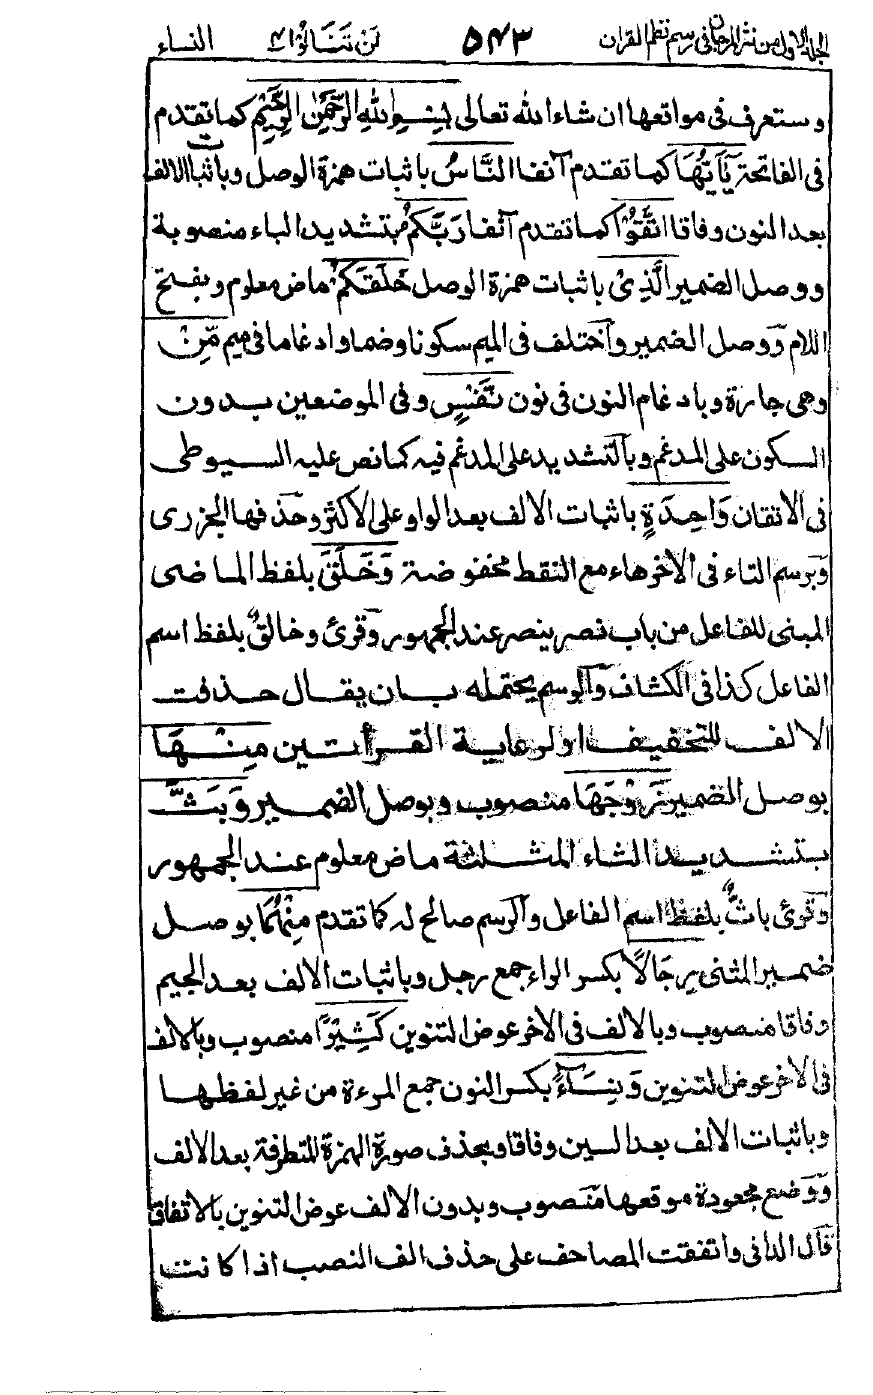 الجلد الاول من نثر المرجان فى رسم نظم القران ۵۴۳ لن تنالوا ۴ النساء
وستعرف فى مواقعها ان شاء الله تعالى بِسْمِ اللهِ الرَّحْمٰنِ الرَّحِيْمِ كما تقدم
فى الفاتحة يٰٓاَيُّهَا كما تقدم آنفا النَّاسُ باثبات همزة الوصل وباثبات الالف
بعد النون وفاقا اتَّقُوْا كما تقدم آنفا رَبَّكُمُ بتشديد الباء منصوبة
ووصل الضمير الَّذِىْ باثبات همزة الوصل خَلَقَكُمْ ماض معلوم وبفتح
اللام ووصل الضمير واختلف فى الميم سكونا وضما وادغاما فى ميم مِّنْ
وهى جارة وبادغام النون فى نون نَّفْسٍ وفى الموضعين بدون
السكون على المدغم وبالتشديد على المدغم فيه كما نص عليه السيوطى
فى الاتقان وَاحِدَةٍ باثبات الالف بعد الواو على الاكثر وحذفها الجزرى
وبرسم التاء فى الاخر هاء مع النقط مخفوضة وَخَلَقَ بلفظ الماضى
المبنى للفاعل من باب نصر ينصر عند الجمهور وقرئ وخالقٌ بلفظ اسم
الفاعل كذا فى الكشاف والرسم يحتمله بان يقال حذفت
الالف للتخفيف اولرعاية القرأتين مِنْهَا
بوصل الضمير زَوْجَهَا منصوب وبوصل الضمير وَبَثَّ
بتشديد الثاء المثلثة ماض معلوم عند الجمهور
وقرئ باثٌّ بلفظ اسم الفاعل والرسم صالح له كما تقدم مِنْهُمَا بوصل
ضمير المثنى رِجَالًا بكسر الراء جمع رجل وباثبات الالف بعد الجيم
وفاقا منصوب وبالالف فى الاخر عوض التنوين كَثِيْرًا منصوب وبالالف
فى الاخر عوض التنوين وَنِسَآءً بكسر النون جمع المرءة من غير لفظها
وباثبات الالف بعد السين وفاقا وبحذف صورة الهمزة المتطرفة بعد الالف
ووضع مجعودة موقعها منصوب وبدون الالف عوض التنوين بالاتفاق
قال الدانى واتفقت المصاحف على حذف الف النصب اذا كانت